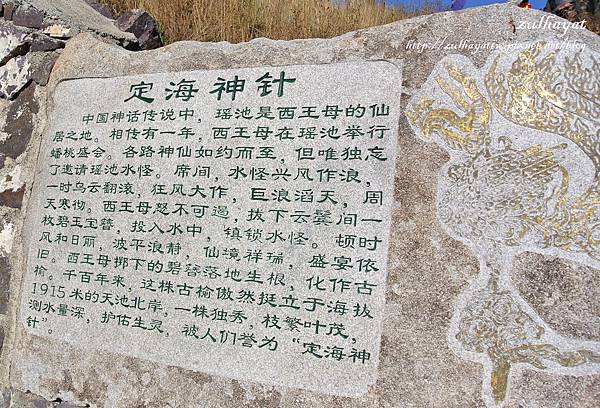 zulhayat
http://zulhayat.pixnet.net/blog
定海神针
中国神话传说中，瑶池是西王母的仙
居之地。相传有一年，西王母在瑶池举行
蟠桃盛会。各路神仙如约而至，但唯独忘
了邀请瑶池水怪。席间，水怪兴风作浪，
一时乌云翻滚，狂风大作，巨浪滔天，周
天寒彻。西王母怒不可遏，拔下云鬓间一
枚碧玉宝簪，投入水中，镇锁水怪。顿时
风和日丽，波平浪静，仙境祥瑞，盛宴依
旧。西王母掷下的碧簪落地生根，化作古
榆。千百年来，这株古榆傲然挺立于海拔
1915米的天池北岸，一株独秀，枝繁叶茂，
测水量深，护佑生灵，被人们誉为“定海神
针”。